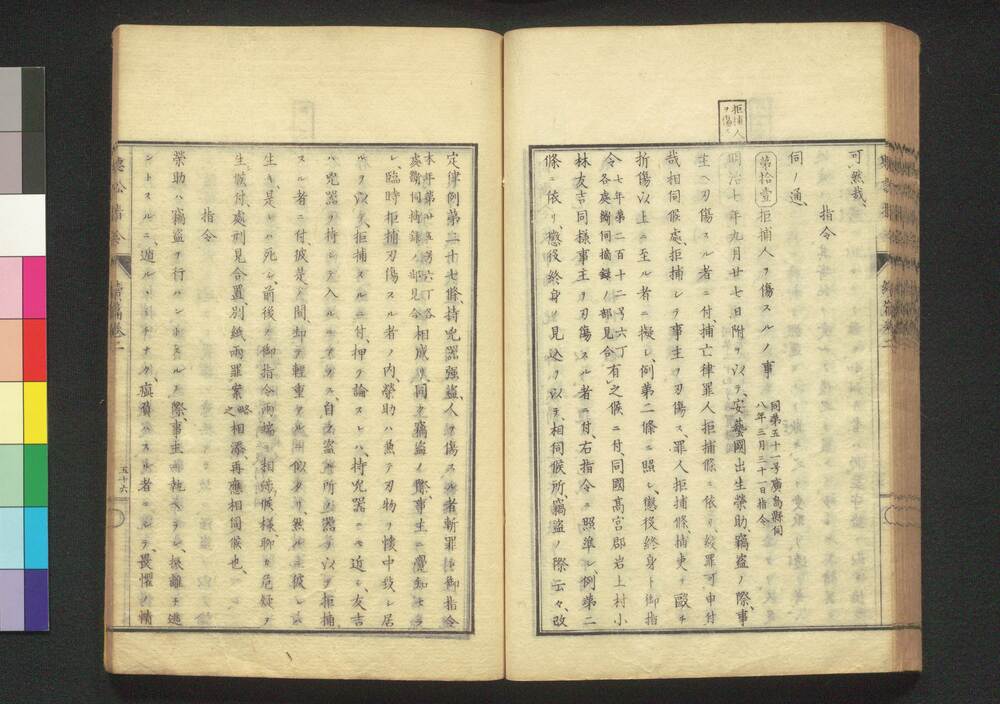 可然哉、
指令
伺ノ通、
拒捕人
ヲ傷ル
第拾壹 拒捕人ヲ傷スルノ事 同第五十一号廣島縣伺
八年三月三十一日指令
明治七年九月廿七日附ヲ以テ、安藝國出生榮助、竊盗ノ際、事
主ヘ刃傷スル者ニ付、捕亡律罪人拒捕條ニ依リ、絞罪可申付
哉相伺候處、拒捕シテ事主ヲ刃傷ス、罪人拒捕條、捕吏ヲ毆チ
折傷以上ニ至ル者ニ擬シ、例第二條ニ照シ、懲役終身ト御指
令七年第二百十二号六丁
各處斷伺摘録ノ部見合有之候ニ付、同國高宮郡岩上村小
林友吉同樣事主ヲ刃傷スル者ニ付、右指令ニ照準シ、例第二
條ニ依リ、懲役終身ト見込ヲ以テ、相伺候所、竊盗ノ際云々、改
定律例第二十七條、持兇器强盗、人ヲ傷スル者斬罪ト御指令
本年第廿五号六丁各
處斷伺摘録ノ部見合相成リ、同ク竊盗ノ際、事主ニ覺知セラ
レ、臨時拒捕刃傷スル者ノ内、榮助ハ無テ刃物ヲ懷中致シ居
ルヲ以テ、拒捕スルニ付、押テ論スレハ、持兇器ニモ近シ、友吉
ハ兇器ヲ持シテ入ルニアラス、自ラ盗ム所ノ器ヲ以テ拒捕
スル者ニ付、彼是人間却テ輕重アルニ似タリ、然ルヲ彼レハ
生キ、是レハ死シ、前後ノ御指令兩端ニ相渉候樣、聊カ危疑ヲ
生シ候付、處刑見合置、別紙兩罪案略之相添、再應相伺候也、
指令
榮助ハ竊盗ヲ行ハントスルノ際、事主ニ執ヘラレ、振離シ逃
ントスルニ、遁ルヽミチナク、瘨殞ハスル者ニシテ、畏懼ノ情
五十六